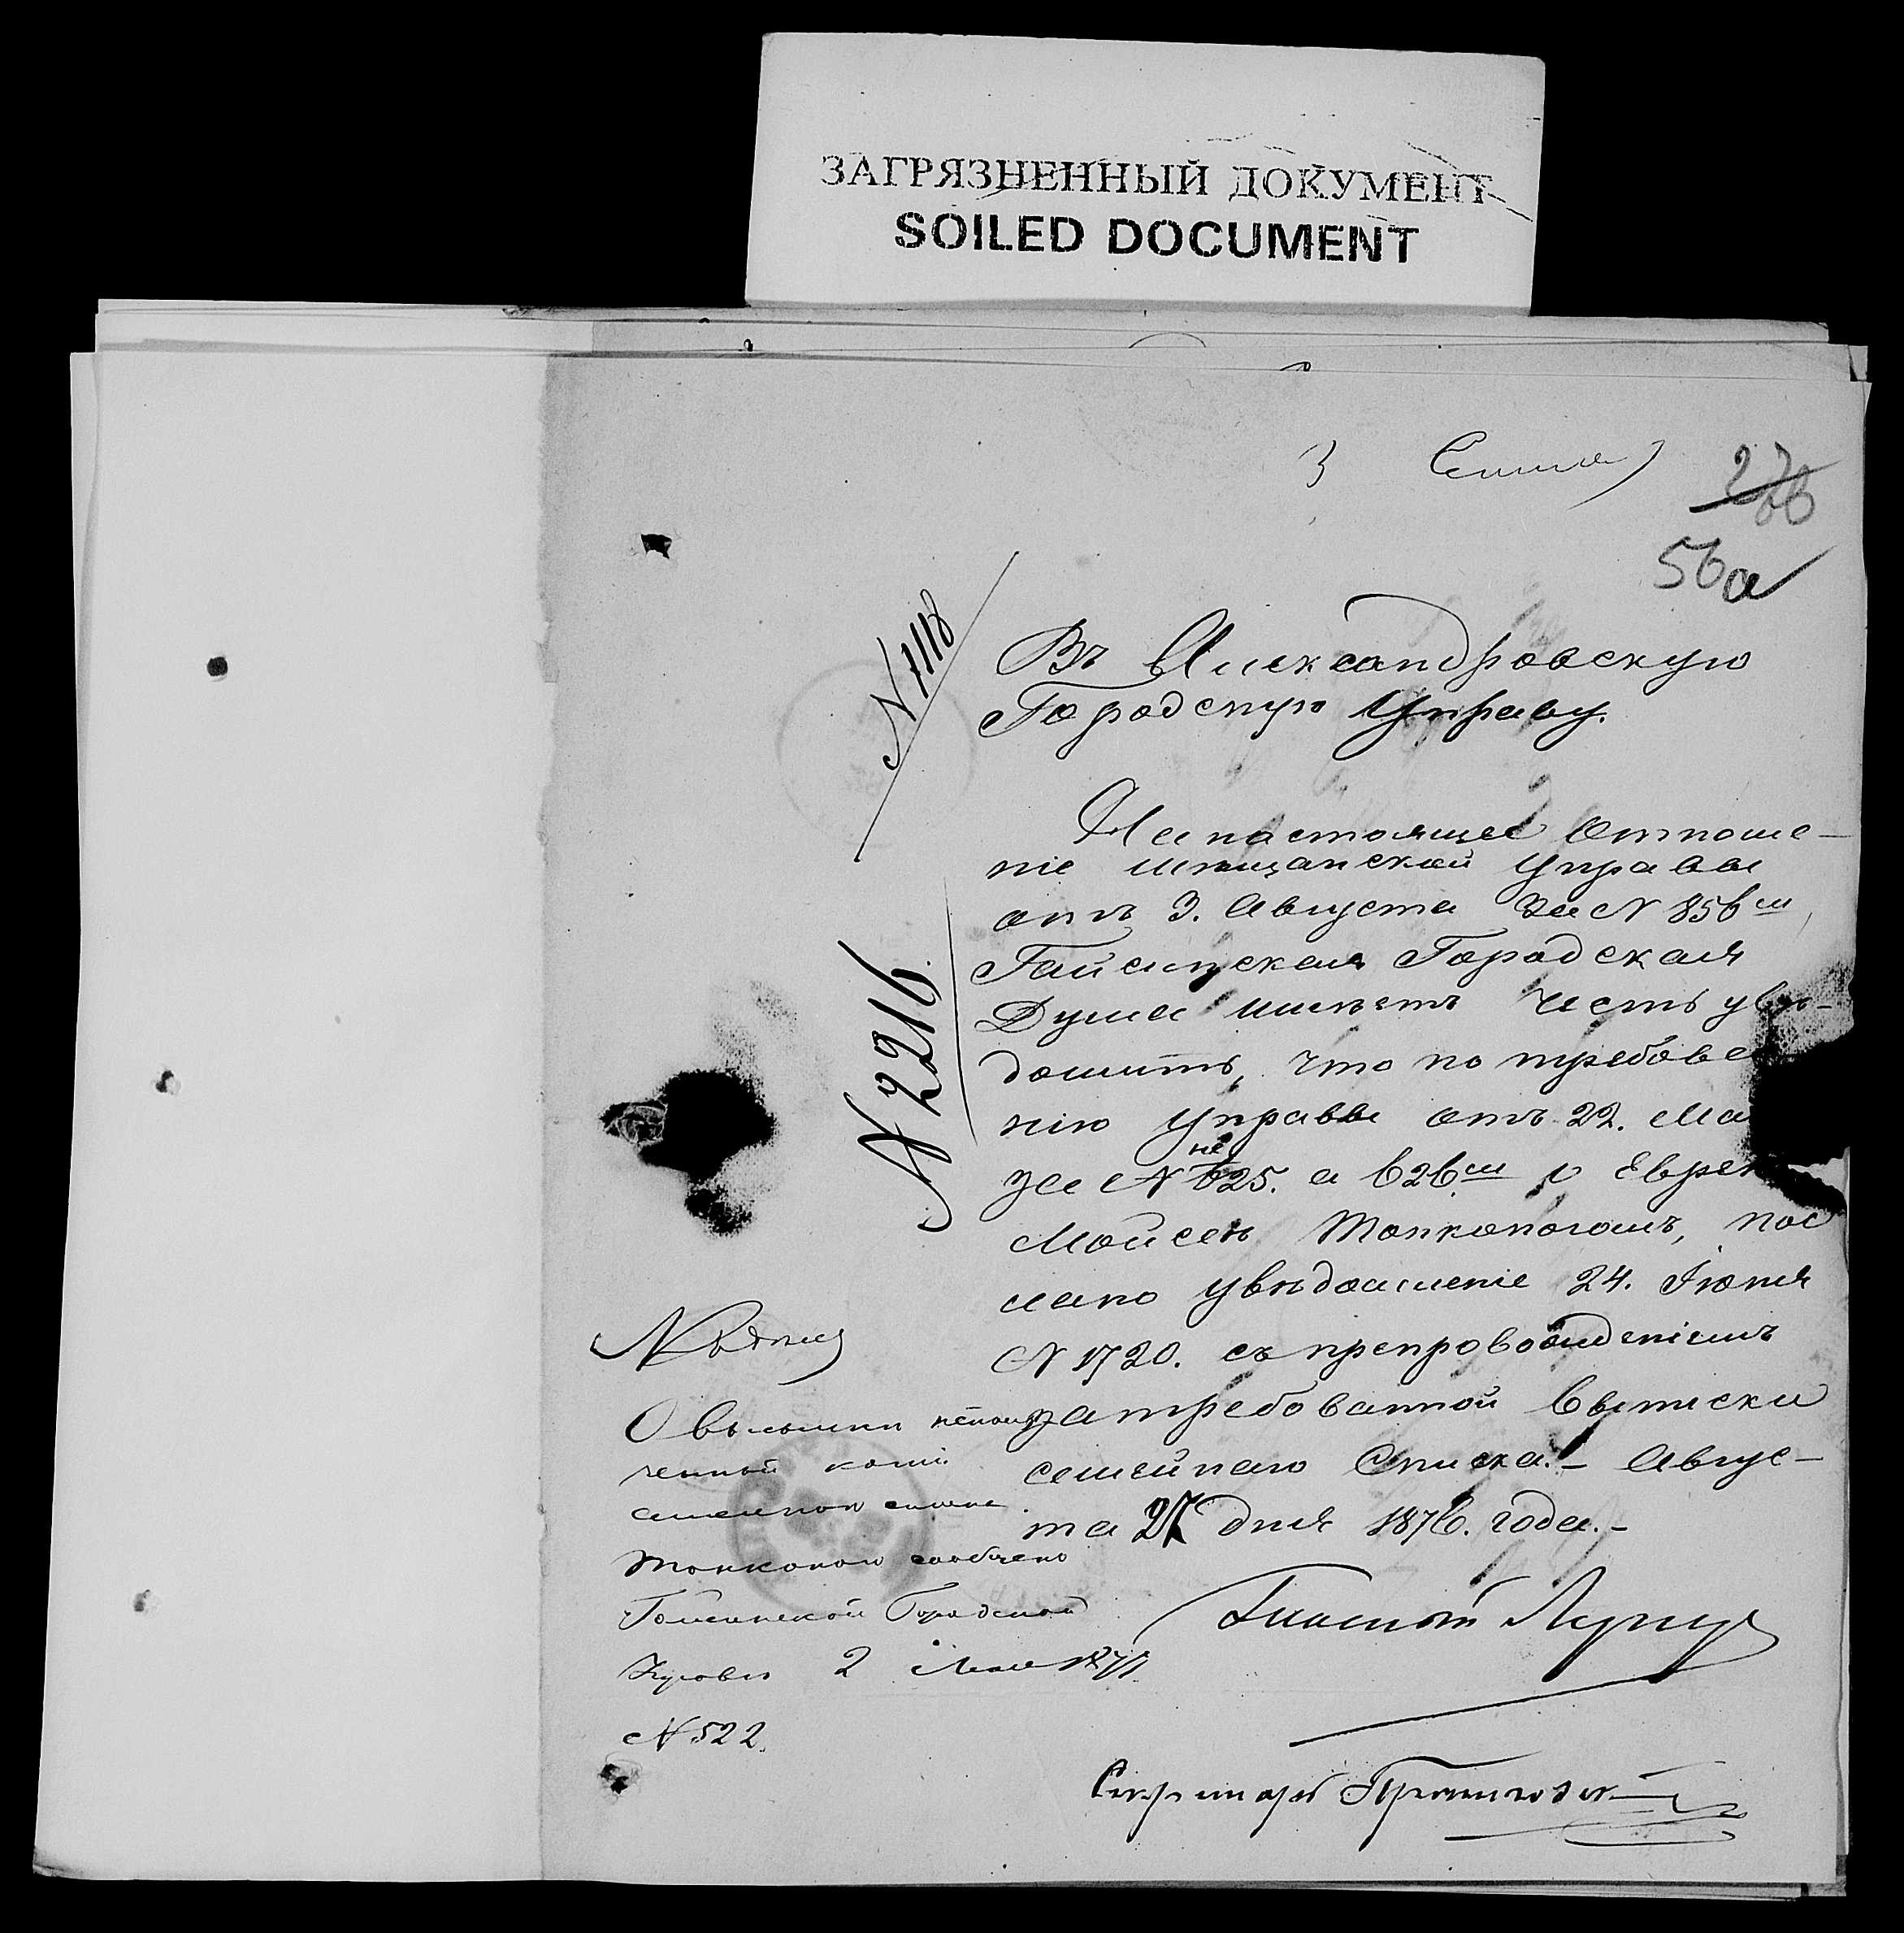 ЗАГРЯЗНЕННЫЙ ДОКУМЕНТ
SOILED DOCUMENT
3
56а
N 1118
Въ Александровскую
Городскую Управу.
На настоящее Отноше-
ніе Мѣщанской Управы
отъ 3. Августа За N 856 м
Гайсинская Городская
Дума имѣетъ честь увѣ-
домить, что по требова
нію Управы отъ 22. Ма
за N не 625. а 626 м о Евре
Мойсеѣ Тонконогомъ, пос
лано увѣдомленіе 24. Іюня
N 1720. съ препровожденіемъ
затребованной выписки
семейнаго Списка. – Авгус-
та 27 дня 1876. года. –
N 2216.
Гласный
Секретарь
О высылки
ченной копіи
семейного списка
Тонконого сообщено
Гайсинской Городской
Управѣ 2 1877
N 522.